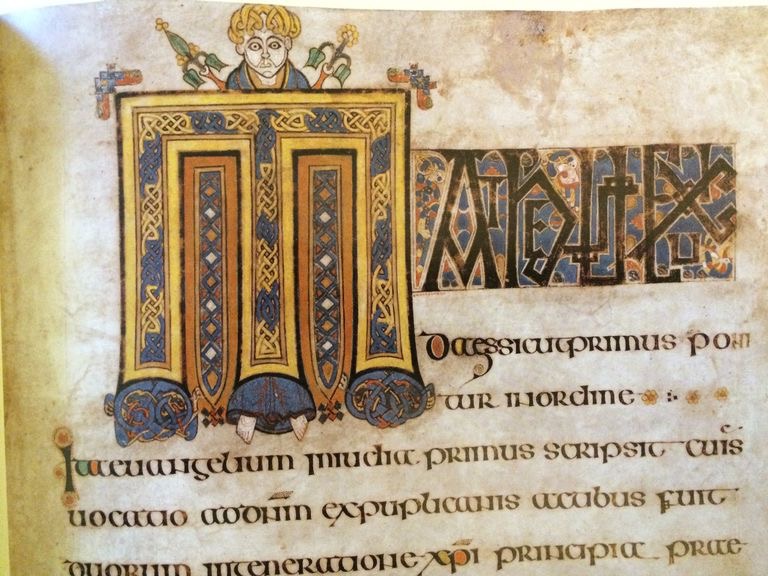 MATHEUS EX IU
daes sicut primus pon
itur in ordine
Ita euangelium in iudia primus scripsit cuis
uocatio ad dnm ex puplicanis actibus fuit
duorum in generatione xpi principia prae